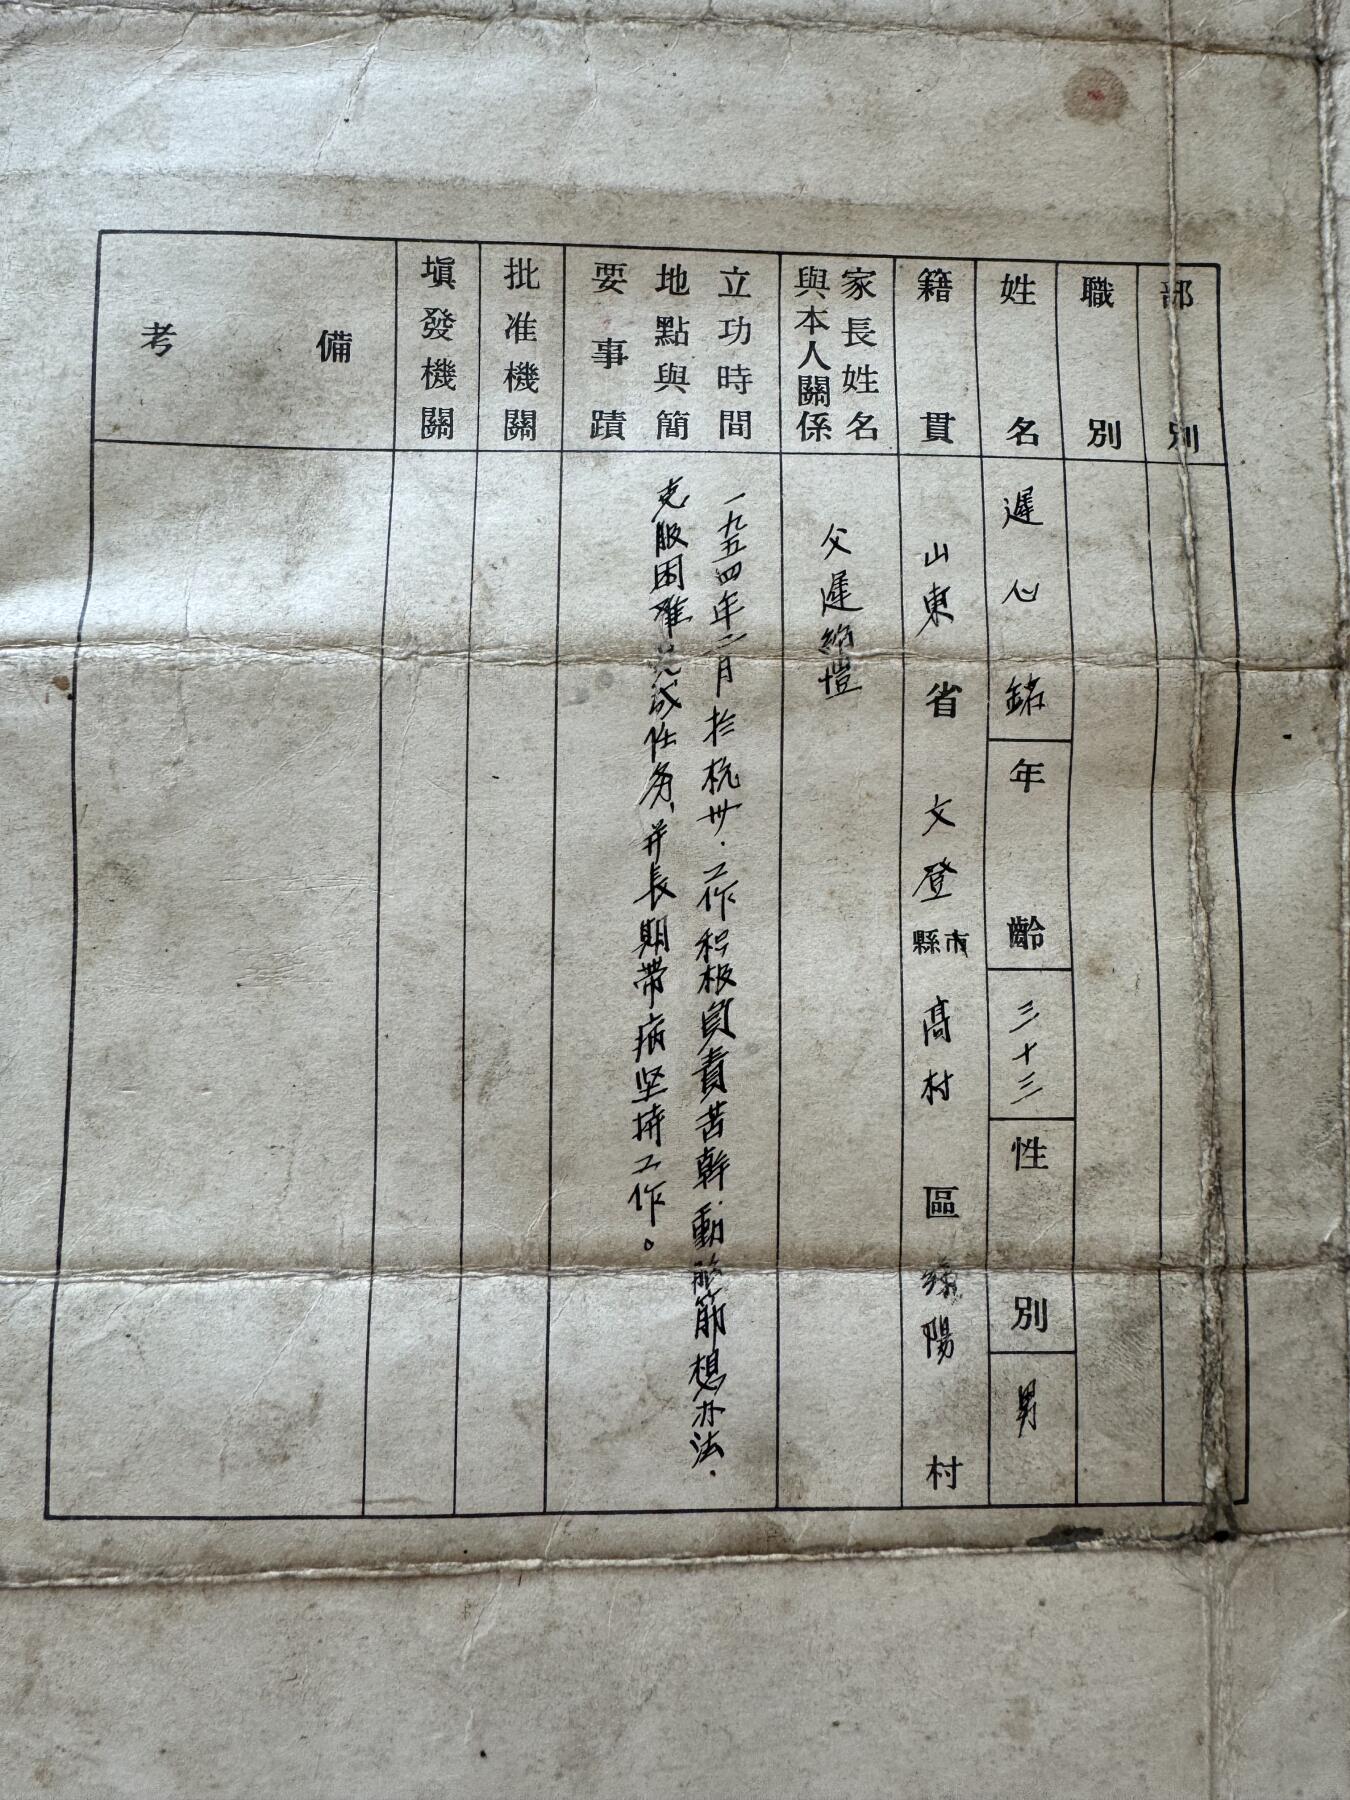 部別
職別
姓名 遲心銘 年齡 三十三 性別 男
籍貫 山東省 文登 市縣 高村 區 陽 村
家長姓名
與本人關係 父遲
立功時間 一九五四年二月扵杭州．工作积极負責苦幹．動腦筋想办法．
地點與簡 克服困难完成任务、并長期帶病坚持工作。
要事蹟
批准機關
填發機關
備考